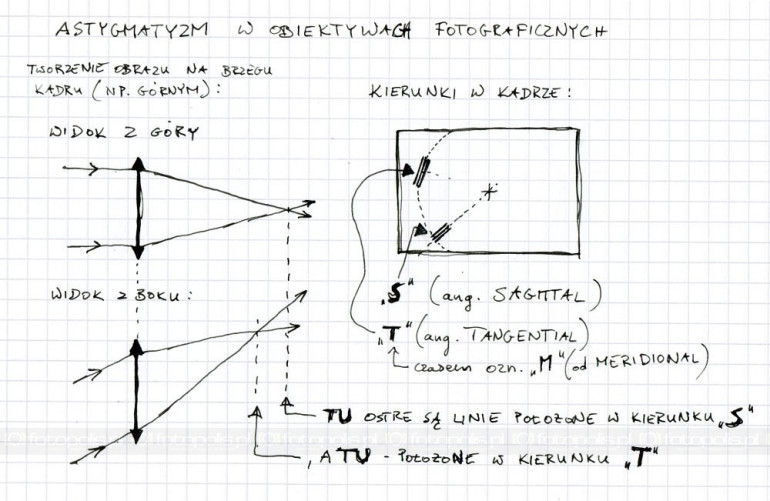 ASTYGMATYZM W OBIEKTYWACH FOTOGRAFICZNYCH
TWORZENIE OBRAZU NA BRZEGU
KADRU (NP. GÓRNYM):
KIERUNKI W KADRZE:
WIDOK Z GÓRY
WIDOK Z BOKU:
„S" (ang. SAGITTAL)
„T" (ang. TANGENTIAL)
czasem ozn. „M" (od MERIDIONAL)
TU OSTRE SĄ LINIE POŁOŻONE W KIERUNKU „S"
, A TU - POŁOŻONE W KIERUNKU „T"